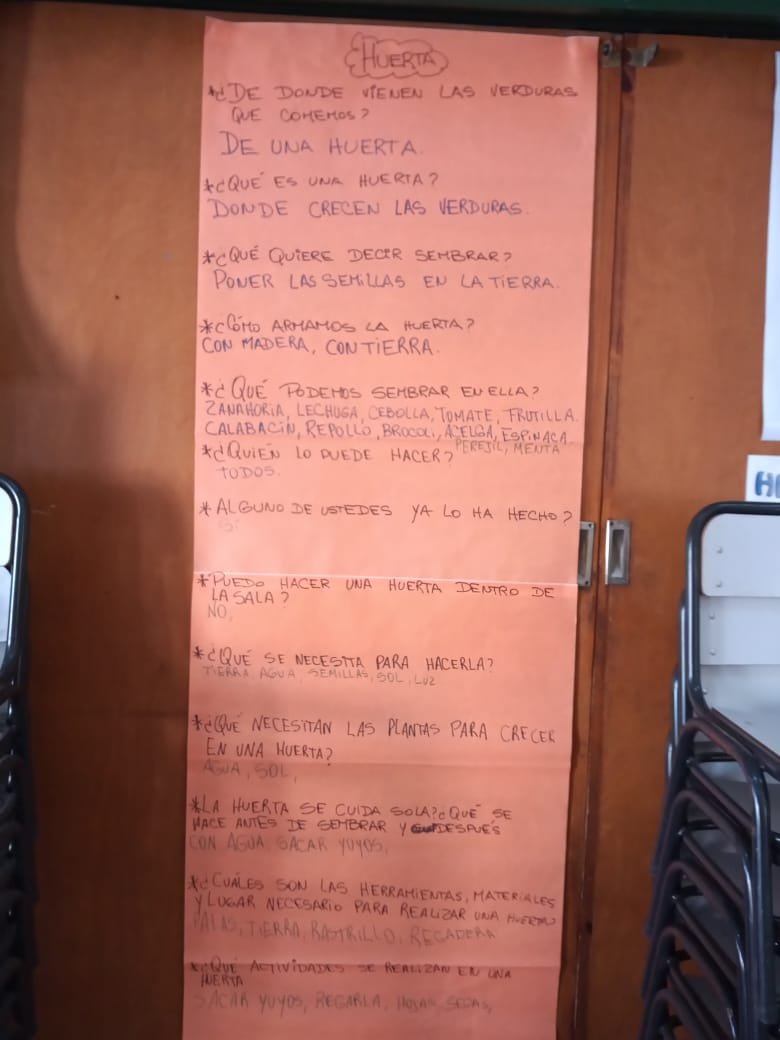 HUERTA
*¿DE DONDE VIENEN LAS VERDURAS
QUE COMEMOS?
DE UNA HUERTA.
*¿QUÉ ES UNA HUERTA?
DONDE CRECEN LAS VERDURAS.
*¿QUÉ QUIERE DECIR SEMBRAR?
PONER LAS SEMILLAS EN LA TIERRA.
*¿CÓMO ARMAMOS LA HUERTA?
CON MADERA, CON TIERRA.
*¿QUÉ PODEMOS SEMBRAR EN ELLA?
ZANAHORIA, LECHUGA, CEBOLLA, TOMATE, FRUTILLA.
CALABACÍN, REPOLLO, BROCOLI, ACELGA, ESPINACA
PEREJIL, MENTA
*¿QUIÉN LO PUEDE HACER?
TODOS.
*ALGUNO DE USTEDES YA LO HA HECHO?
SÍ
*PUEDO HACER UNA HUERTA DENTRO DE
LA SALA?
NO.
*¿QUÉ SE NECESITA PARA HACERLA?
TIERRA, AGUA, SEMILLAS, SOL, LUZ
*¿QUÉ NECESITAN LAS PLANTAS PARA CRECER
EN UNA HUERTA?
AGUA, SOL,
*LA HUERTA SE CUIDA SOLA? ¿QUÉ SE
HACE ANTES DE SEMBRAR Y DESPUÉS
CON AGUA, SACAR YUYOS,
*¿CUÁLES SON LAS HERRAMIENTAS, MATERIALES
Y LUGAR NECESARIO PARA REALIZAR UNA HUERTA?
PALAS, TIERRA, RASTRILLO, REGADERA
*¿QUÉ ACTIVIDADES SE REALIZAN EN UNA
HUERTA
SACAR YUYOS, REGARLA, HOJAS SECAS,